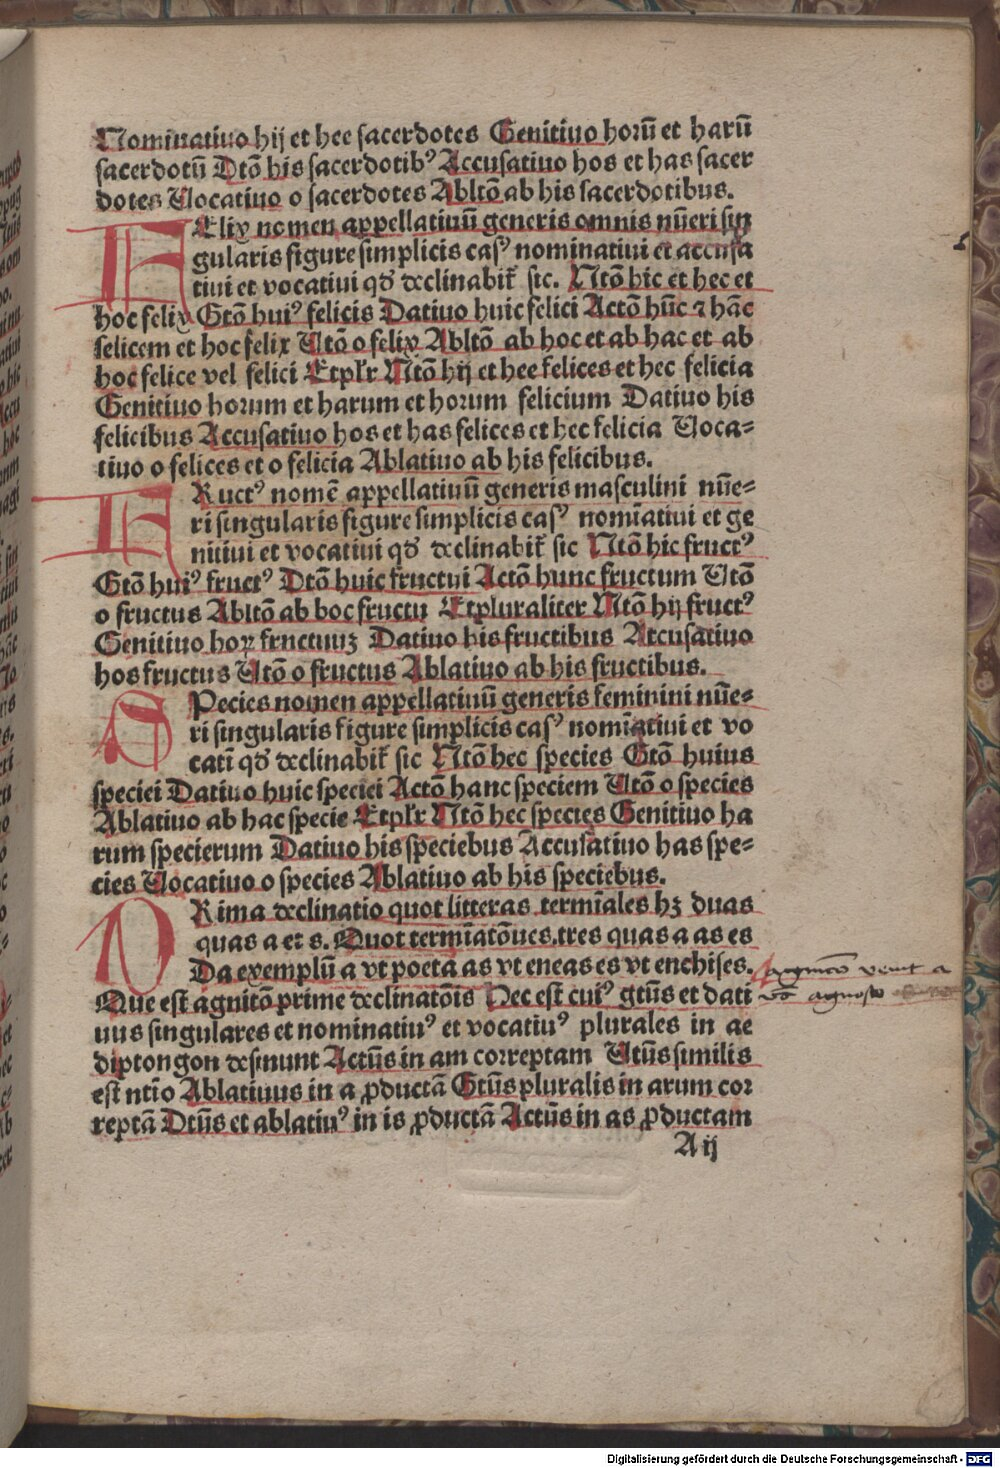 Nominatiuo hij et hee sacerdotes Genitiuo horū et harū
sacerdotū Dtō his sacerdotibꝰ Accusatiuo hos et has sacer
dotes Uocatiuo o sacerdotes Abltō ab his sacerdotibus.
FElix nomen appellatiuū generis omnis nūeri sin
gularis figure simplicis casꝰ nominatiui et accusa
tiui et vocatiui qd̄ declinabit̄ sic. Ntō hic et hec et
hoc felix Gtō huiꝰ felicis Datiuo huic felici Actō hūc ⁊ hāc
felicem et hoc felix Utō o felix Abltō ab hoc et ab hac et ab
hoc felice vel felici Etplr̄ Ntō hij et hee felices et hec felicia
Genitiuo horum et harum et horum felicium Datiuo his
felicibus Accusatiuo hos et has felices et hec felicia Uoca-
tiuo o felices et o felicia Ablatiuo ab his felicibus.
FRuctꝰ nomē appellatiuū generis masculini nūe-
ri singularis figure simplicis casꝰ nomīatiui et ge
nitiui et vocatiui qd̄ declinabit̄ sic Ntō hic fructꝰ
Gtō huiꝰ fructꝰ Dtō huic fructui Actō hunc fructum Utō
o fructus Abltō ab hoc fructu Etpluraliter Ntō hij fructꝰ
Genitiuo hoꝝ frnctuuꝫ Datiuo his fructibus Accusatiuo
hos fructus Utō o fructus Ablatiuo ab his fructibus.
SPecies nomen appellatiuū generis feminini nūe-
ri singularis figure simplicis casꝰ nomīatiui et vo
cati qd̄ declinabit̄ sic Ntō hec species Gtō huius
speciei Datiuo huic speciei Actō hanc speciem Utō o species
Ablatiuo ab hac specie Etplr̄ Ntō hec species Genitiuo ha
rum specierum Datiuo his speciebus Accusatiuo has spe-
cies Uocatiuo o species Ablatiuo ab his speciebus.
PRima declinatio quot litteras termīales hꝫ duas
quas a et s. Quot termīatōues.tres quas a as es
Da exemplū a vt poeta as vt eneas es vt enchises.
Que est agnitō prime declinatōis Hec est cuiꝰ gtūs et dati
uus singulares et nominatiuꝰ et vocatiuꝰ plurales in ae
diptongon desinunt Actūs in am correptam Utūs similis
est ntīo Ablatiuus in a ꝓductā Gtūs pluralis in arum cor
reptā Dtūs et ablatiuꝰ in is ꝓductā Actūs in as ꝓductam
A ij
Digitalisierung gefördert durch die Deutsche Forschungsgemeinschaft - DFG